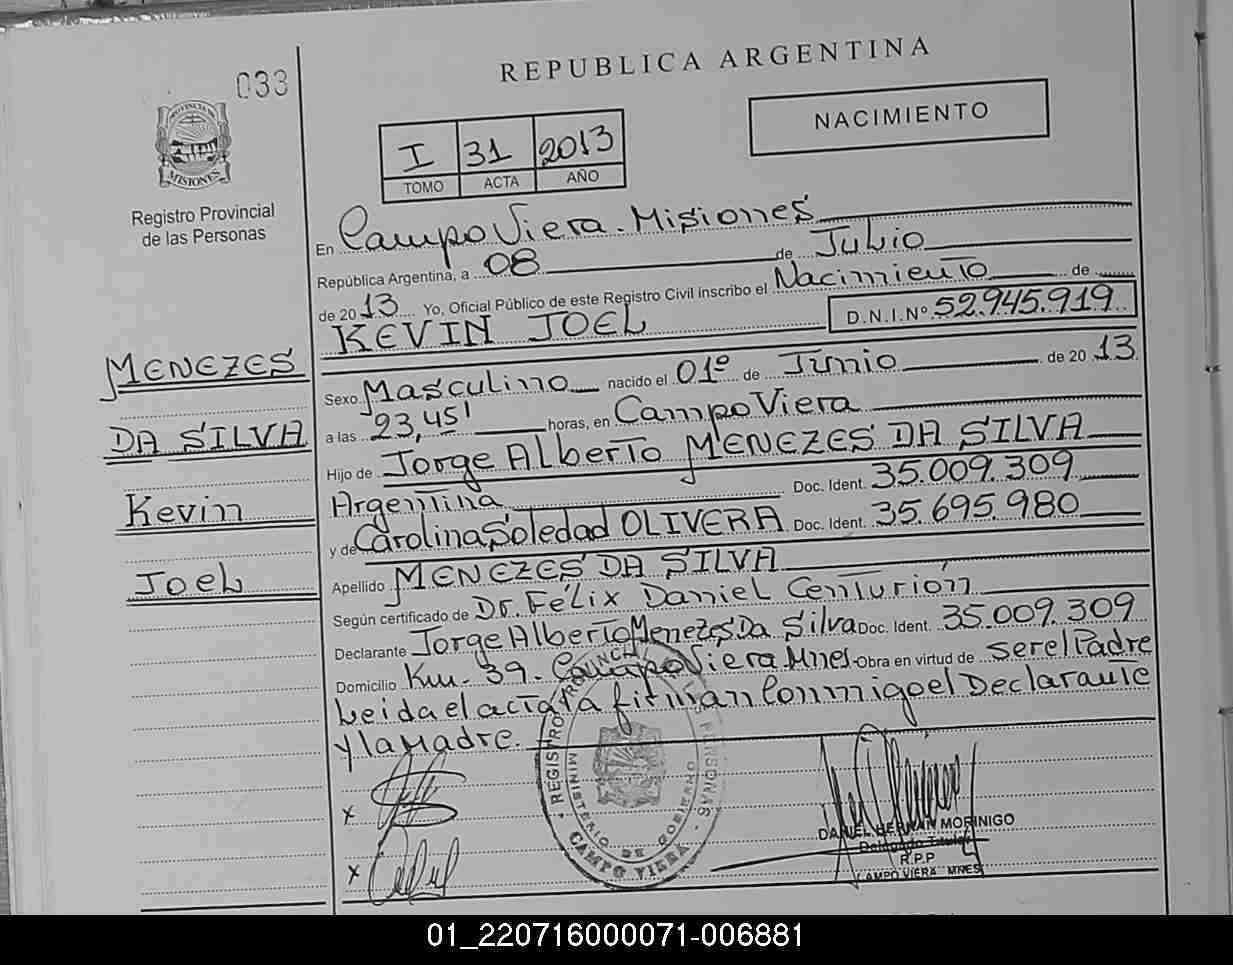 033
REPUBLICA ARGENTINA
PROVINCIA DE MISIONES
Registro Provincial
de las Personas
I 31 2013
TOMO ACTA AÑO
NACIMIENTO
En Campo Viera - Misiones
República Argentina, a 08 de Julio
de 2013 Yo, Oficial Público de este Registro Civil inscribo el Nacimiento de
KEVIN JOEL D.N.I.Nº 52.945.919
MENEZES
DA SILVA
Kevin
Joel
Sexo Masculino nacido el 01º de Junio de 2013
a las 23,45' horas, en Campo Viera
Hijo de Jorge Alberto MENEZES DA SILVA
Argentina Doc. Ident. 35.009.309
y de Carolina Soledad OLIVERA Doc. Ident. 35.695.980
Apellido MENEZES DA SILVA
Según certificado de Dr. Félix Daniel Centurión
Declarante Jorge Alberto Menezes Da Silva Doc. Ident. 35.009.309
Domicilio Km. 39 - Campo Viera Mnes. Obra en virtud de ser el Padre
Leida el acta la firman conmigo el Declarante
y la Madre.
REGISTRO PROVINCIAL PERSONAS
MINISTERIO DE GOBIERNO
CAMPO VIERA
x
x
DANIEL HERNAN MORINIGO
Delegado Titular
R.P.P
CAMPO VIERA MNES
01_220716000071-006881